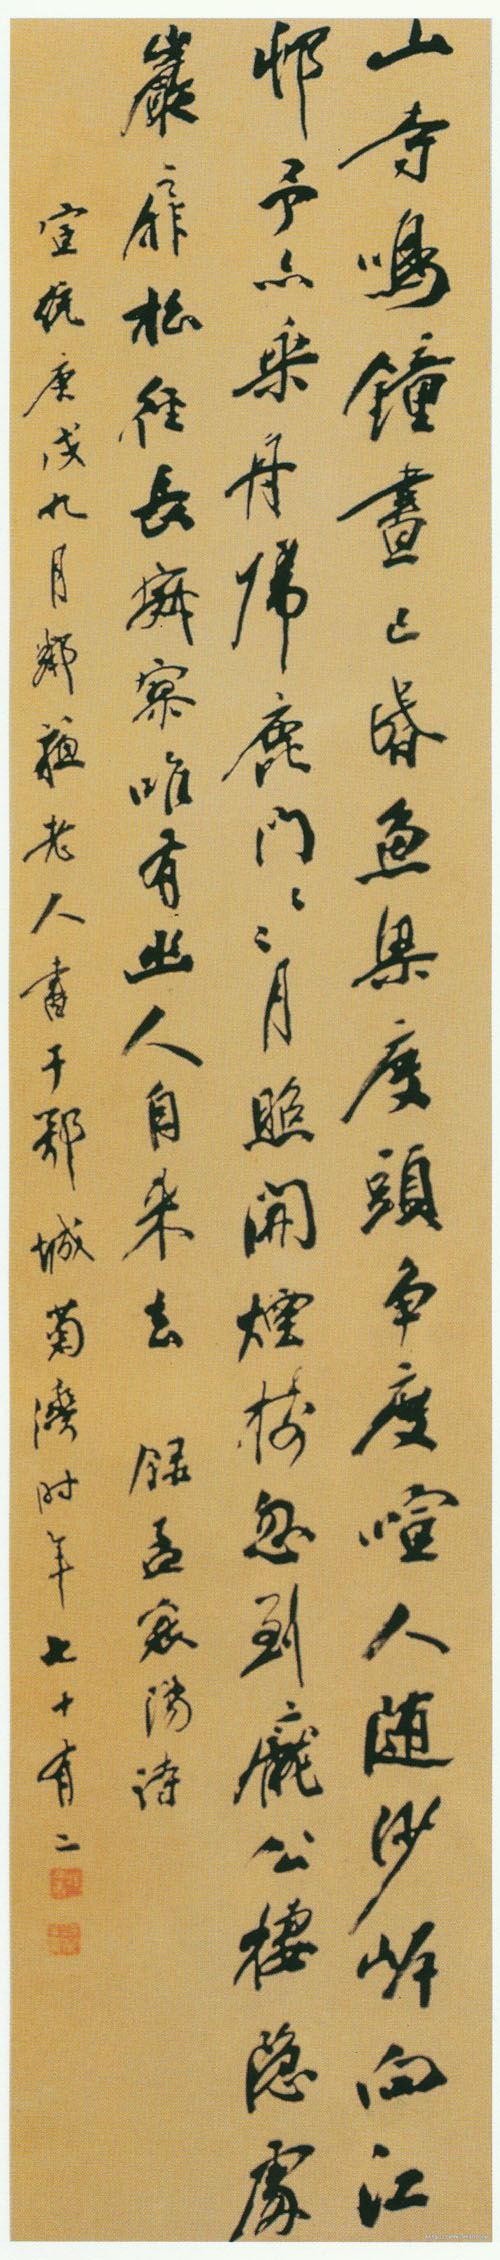 山寺鳴鐘晝已昏魚梁度頭争度喧人随沙岸向江
邨予亦乘舟歸鹿門〻〻月照開煙樹忽到龐公棲隐處
巖扉松徑長寂寥唯有幽人自来去 録孟襄陽詩
宣統庚戌九月鄰蘇老人書于鄂城菊灣时年七十有二